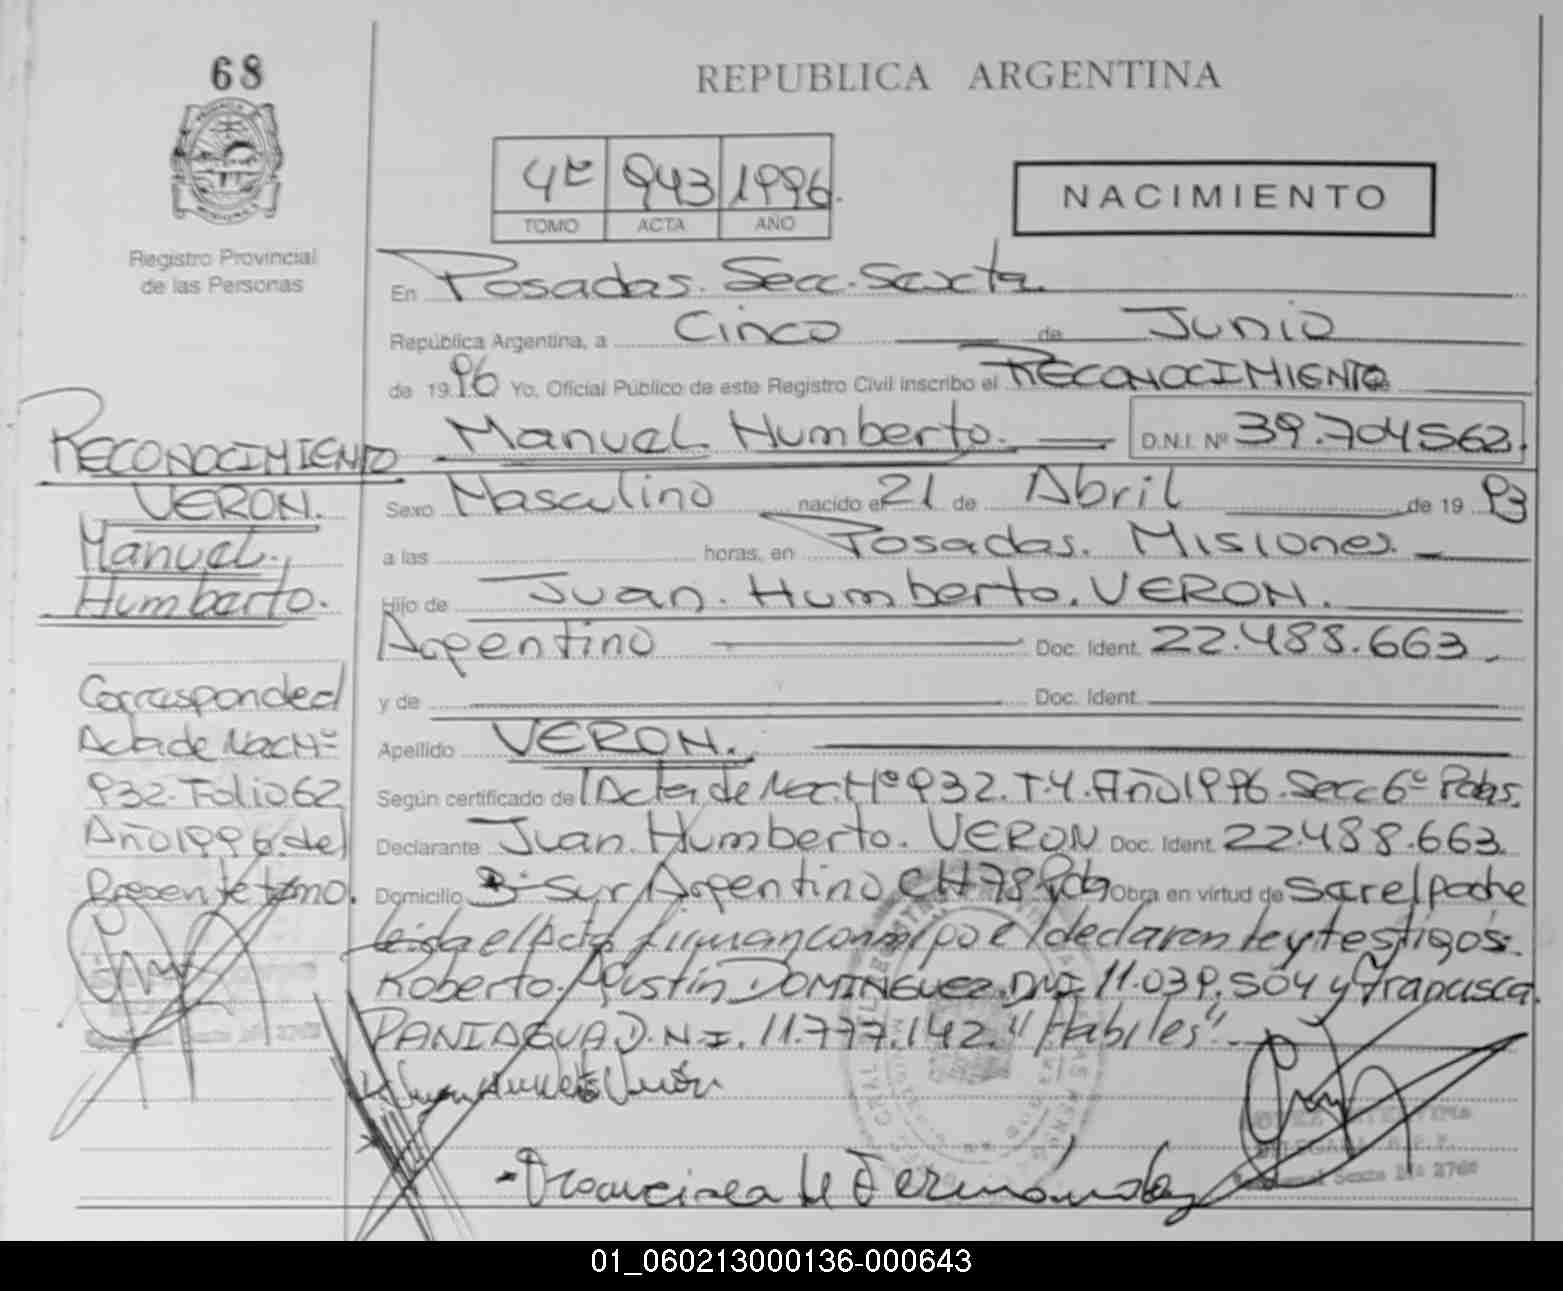 68
REPUBLICA ARGENTINA
Registro Provincial
de las Personas
4º 943 1996.
TOMO ACTA AÑO
NACIMIENTO
En Posadas. Secc. Sexta.
República Argentina, a Cinco de Junio
de 1996 Yo, Oficial Público de este Registro Civil inscribo el RECONOCIMIENTO de
Manuel Humberto. D.N.I. Nº 39.704562.
Sexo Masculino nacido el 21 de Abril de 1993
a las horas, en Posadas. Misiones.
Hijo de Juan. Humberto. VERON.
Argentino Doc. Ident. 22.488.663.
y de Doc. Ident.
Apellido VERON.
Según certificado de Acta de Nac. Nº 932. T.4. Año 1996. Secc 6º Pdas.
Declarante Juan. Humberto. VERON Doc. Ident. 22.488.663.
Domicilio Bº Sur Argentino CH 78 Pdas Obra en virtud de ser el padre
leida el Acta firman conm/ po el declarante y testigos:
Roberto. Agustín DOMINGUEZ. DNI 11.039.504 y Francisca.
PANIAGUA D.N.I. 11.777.142. "Habiles"
RECONOCIMIENTO
VERON.
Manuel.
Humberto.
Corresponde al
Acta de Nac Nº
932. Folio 62
Año 1996. del
Presente tomo.
Juan Humberto Verón
01_060213000136-000643